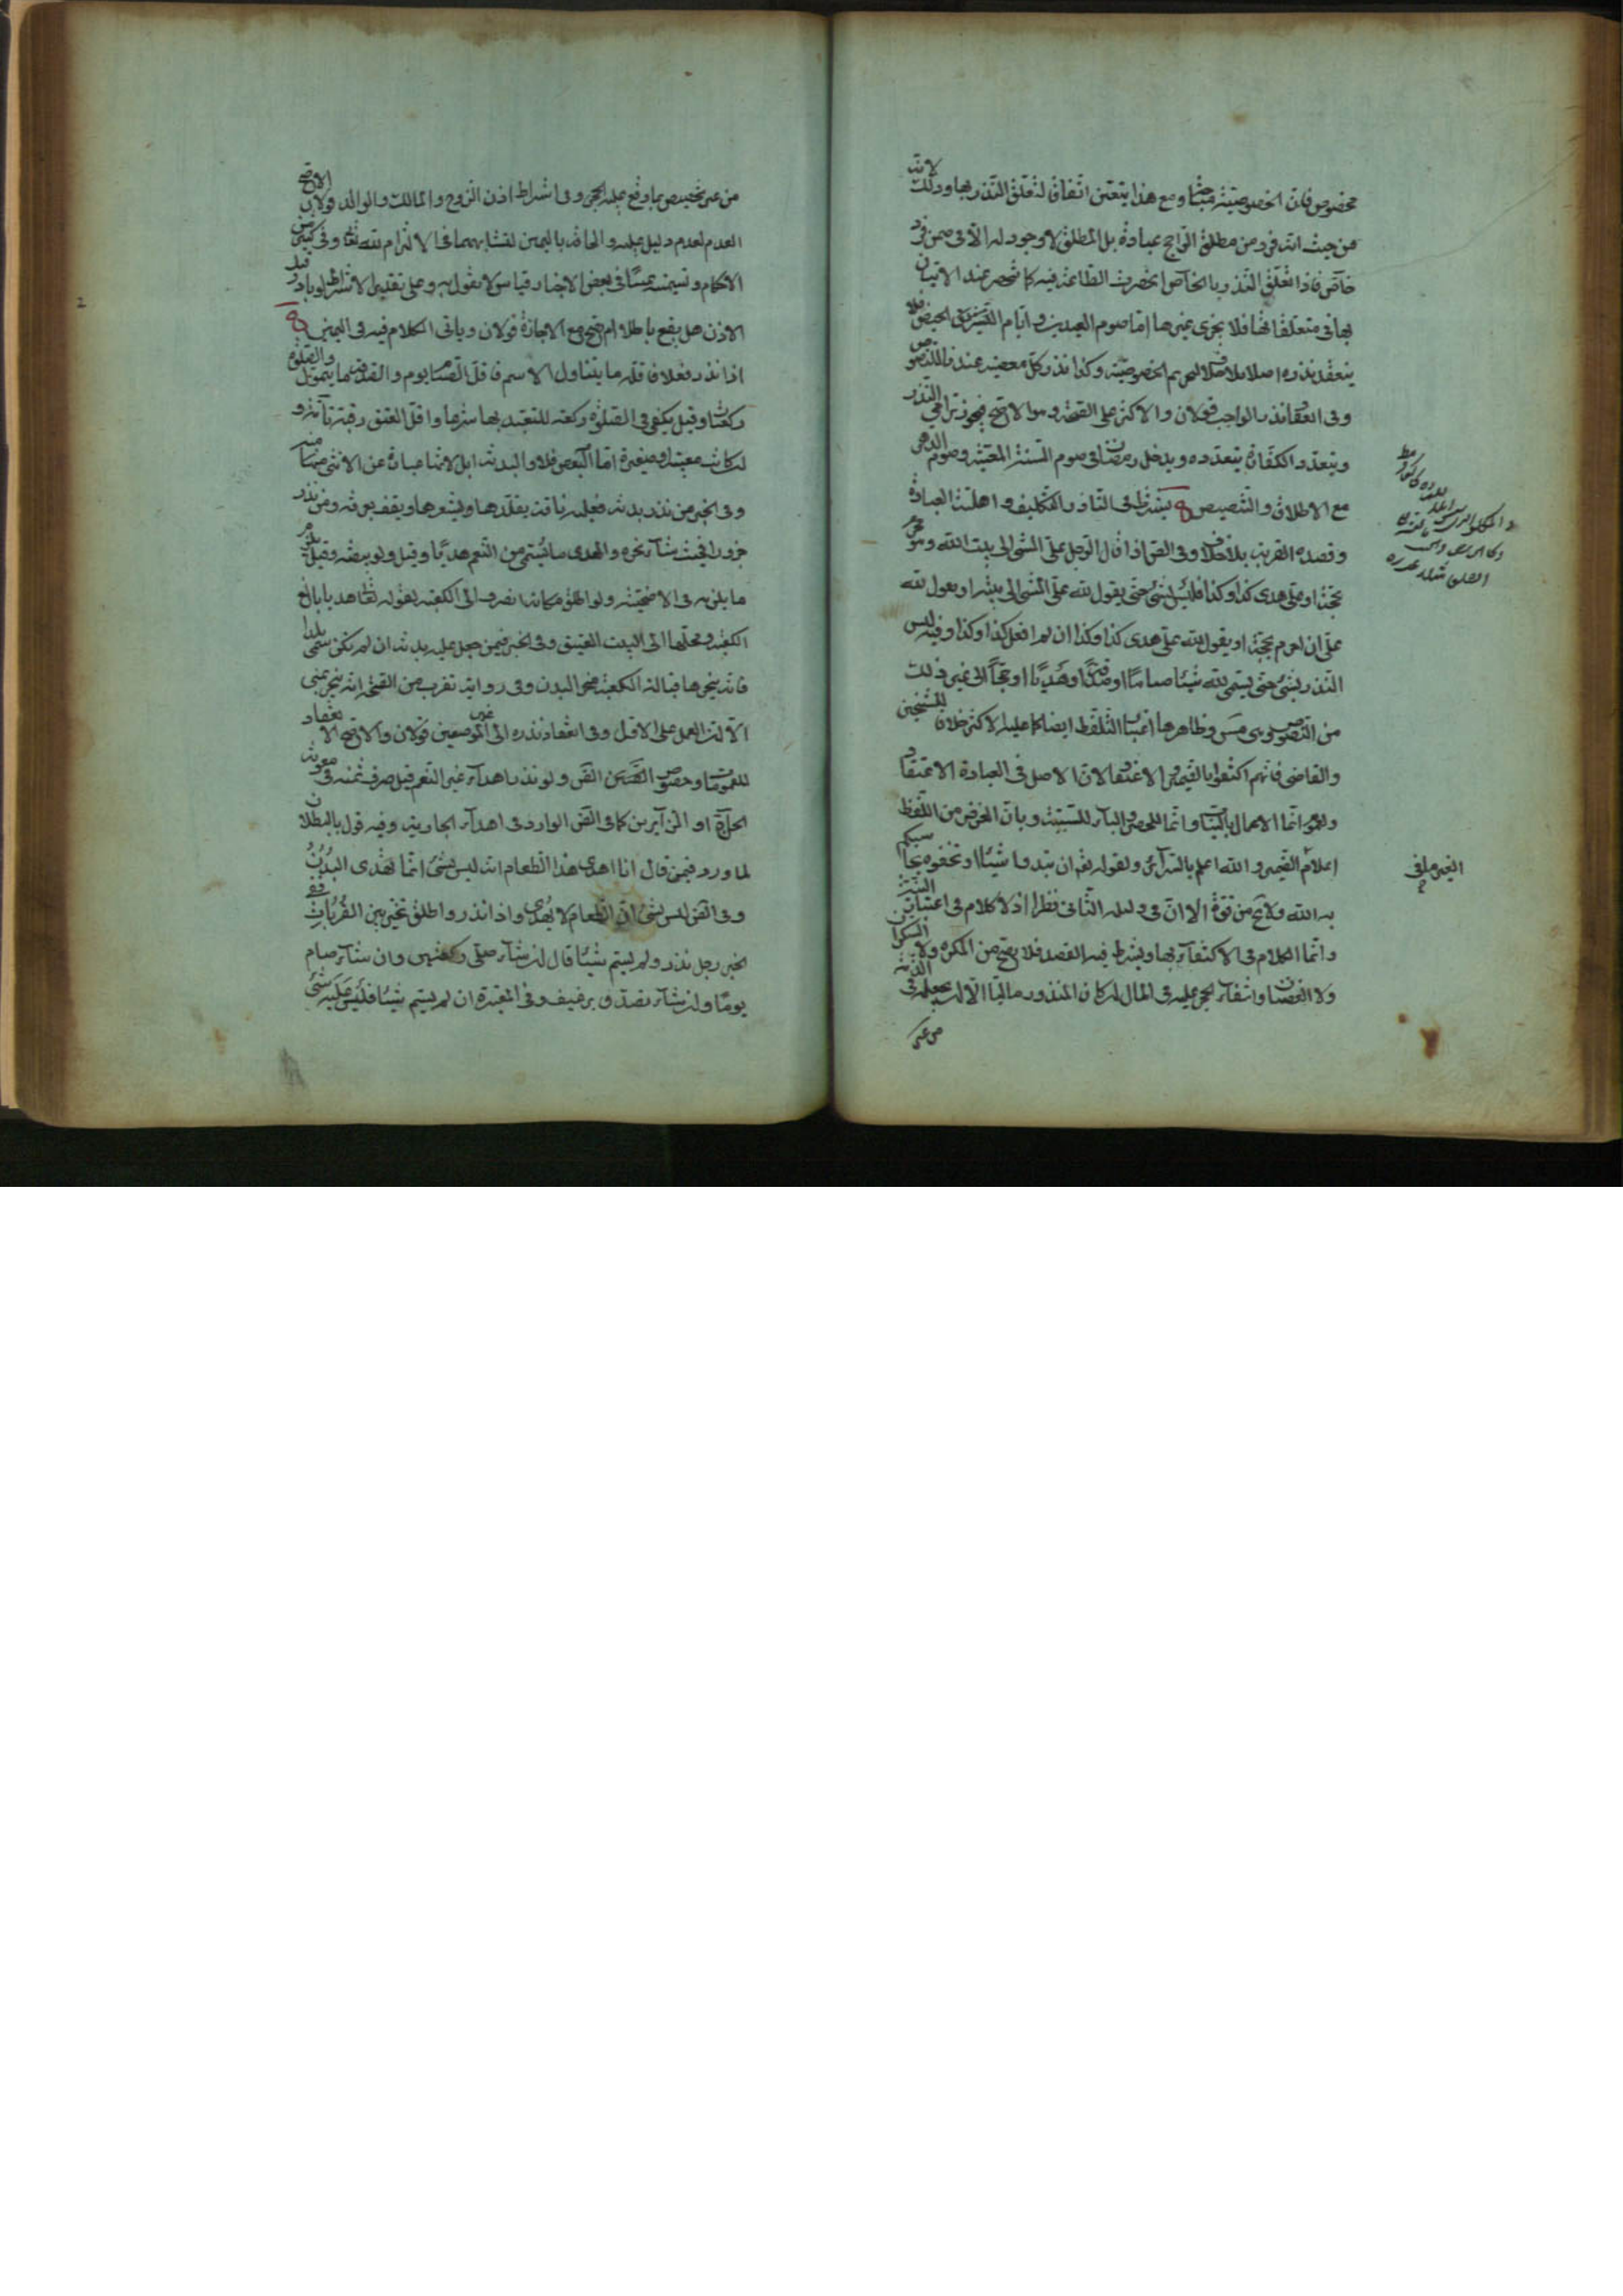 مخصوص فان الخصوصيته مباحة ومع هذا يتعين اتفاق لتعلق النذر بها وذلك لانه
من حيث انه فرد من مطلق الراجح عبادة بل المطلق لا وجود له الا في ضمن فرد
خاص فاذا تعلق النذر بالخاص انحصرت الطاعة فيه كما تنحصر عند الاتيان
بها في متعلقاتها فلا يجزى غيرها اما صوم العيدين وايام التشريق الحيض فلا
ينعقد نذره اصلا بلا خلاف لتحريم الخصوصية وكذا نذر كل معصية عندنا للنصوص
وفي انعقاد نذر الواجب قولان والاكثر على الصحة وهو الاصح فيجوز ترامي النذر
ويتعدد الكفارة بتعدده ويدخل رمضان في صوم السنة المعينة وصوم الدهر
مع الاطلاق والتنصيص يشترط في الناذر التكليف واهلية العبادة
وقصده القربة بلا خلاف وفي الصحيح اذا قال الرجل علي المشي الى بيت الله وهو محرم
بحجة او علي هدى كذا وكذا فليس بشئ حتى يقول لله علي المشي الى بيته او يقول لله
علي ان احرم بحجة او يقول لله علي هدى كذا وكذا ان لم افعل كذا وكذا وفيه ليس
النذر بشئ حتى يسمى لله شيئا صياما او صدقة او هديا او حجا الى غير ذلك
من النصوص وظاهرها اعتبار التلفظ ايضا كما عليه الاكثر خلافا للشيخين
والقاضي فانهم اكتفوا بالضمير والاعتقاد لان الاصل في العبادة الاعتقاد
ولعموم انما الاعمال بالنيات وانما للحصر والباء للسببية وبان الغرض من اللفظ
اعلام الضمير والله اعلم بالسرائر ولقوله تعالى ان تبدوا شيئا او تخفوه يحاسبكم
به الله ولا يخ من قوة الا ان في دليله الثاني نظرا اذ لا كلام في اعتبار النية
وانما الكلام في الاكتفاء بها ويشترط فيه القصد فلا يصح من المكره ولا السكران
ولا الغضبان وانتفاء الحجر عليه في المال ان كان المنذور ماليا الا ان يجعله في الذمة
من غير
من غير تخصيص بما وقع عليه الحجر وفي اشتراط اذن الزوج والمالك والوالد قولان الاصح
العدم لعدم دليل عليه والحاقه باليمين لتشابههما في الالتزام لله تعالى وفي كثير من
الاحكام وتسميته يمينا في بعض الاخبار قياس لا نقول به وعلى تقدير الاشتراط لو بادر قبل
الاذن هل يقع باطلا ام يصح مع الاجازة قولان وياتى الكلام فيه في اليمين
اذا نذر فعلا فاقله ما يتناول الاسم فاقل الصيام يوم والصدقة ما يتمول والصلوة
ركعتان وقيل يكفى في الصلوة ركعة للتعبد بها شرعا واقل العتق رقبة تامة و
ان كانت معيبة او صغيرة اما البعض فلا والبدنة ابل لانها عبارة عن الانثى منها
وفي الخبر من نذر بدنة فعليه ناقة يقلدها ويشعرها ويقف بعرفة ومن نذر
جزورا فحيث شاء نحره والهدى ما يسمى من النعم هديا وقيل ولو بيضة وقيل يلزم
ما يلزمه في الاضحية ولو اطلق مكانها انصرف الى الكعبة لقوله تعالى هديا بالغ
الكعبة ومحلها الى البيت العتيق وفي الخبر فيمن جعل عليه بدنة ان لم تكن سمى بلدا
فانه ينحرها قبالة الكعبة منحر البدن وفي رواية تقرب من الصحة انه ينحر بمنى
الا ان العمل على الاول وفي انعقاد نذره الى غير الموضعين قولان والاصح الانعقاد
للعمومات وخصوص القريب من النص ولو نذر اهداء غير النعم قيل صرف ثمنه في معونة
الحاج او الزائرين كما في النص الوارد في اهداء الجارية وفيه قول بالبطلان
لما ورد فيمن قال انا اهدى هذا الطعام انه ليس بشئ انما تهدى البدن
وفي النص ليس بشئ ان الطعام لا يهدى واذا نذر واطلق تخير بين القربات ففي
الخبر رجل نذر ولم يسم شيئا قال ان شاء صلى ركعتين وان شاء صام
يوما وان شاء تصدق برغيف وفي المعتبرة ان لم يسم شيئا فليس عليه شئ